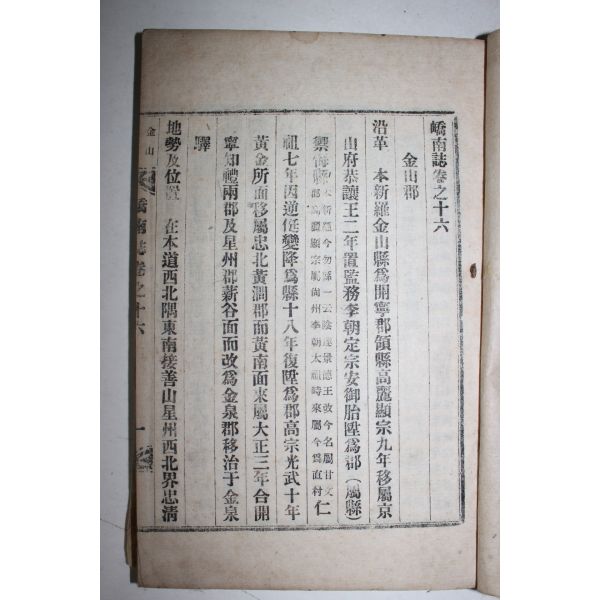 嶠南誌卷之十六
金山郡
沿革 本新羅金山縣爲開寧郡領縣高麗顯宗九年移屬京
山府恭讓王二年置監務李朝定宗安御胎陞爲郡(屬縣)
禦侮縣本新羅今勿縣一云陰達景德王改今名屬甘文
郡高麗顯宗屬尙州李朝太祖時來屬今爲直村
仁
祖七年因逆 變降爲縣十八年復陞爲郡高宗光武十年
黃金所面移屬忠北黃澗郡而黃南面來屬大正三年合開
寧知禮兩郡及星州郡薪谷面而改爲金泉郡移治于金泉
驛
地勢及位置 在本道西北隅東南接善山星州西北界忠淸
金山
嶠南誌卷之十六
一